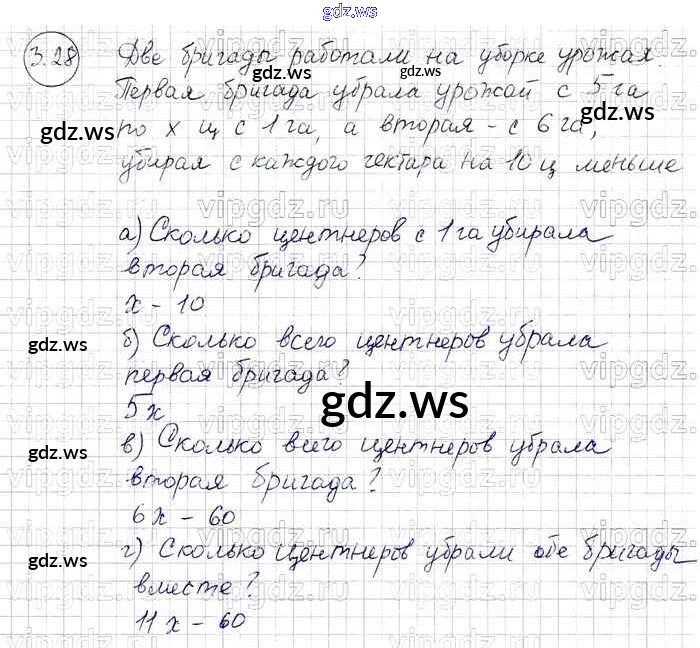 gdz.ws
3.28 Две бригады работали на уборке урожая.
gdz.ws gdz.ws
Первая бригада убрала урожай с 5 га
по x ц с 1 га, а вторая - с 6 га,
gdz.ws gdz.ws
убирая с каждого гектара на 10 ц меньше
vipgdz.ru vipgdz.ru
а) Сколько центнеров с 1 га убирала
вторая бригада?
x - 10
б) Сколько всего центнеров убрала
gdz.ws
первая бригада?
gdz.ws
5x
в) Сколько всего центнеров убрала
gdz.ws
вторая бригада?
6x - 60
г) Сколько центнеров убрали обе бригады
gdz.ws gdz.ws
вместе?
11x - 60